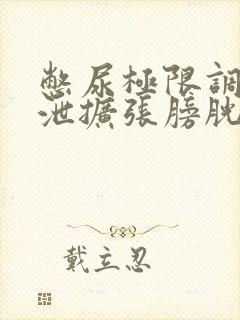 憋尿極限調
泄擴張膀胱
戴立忍